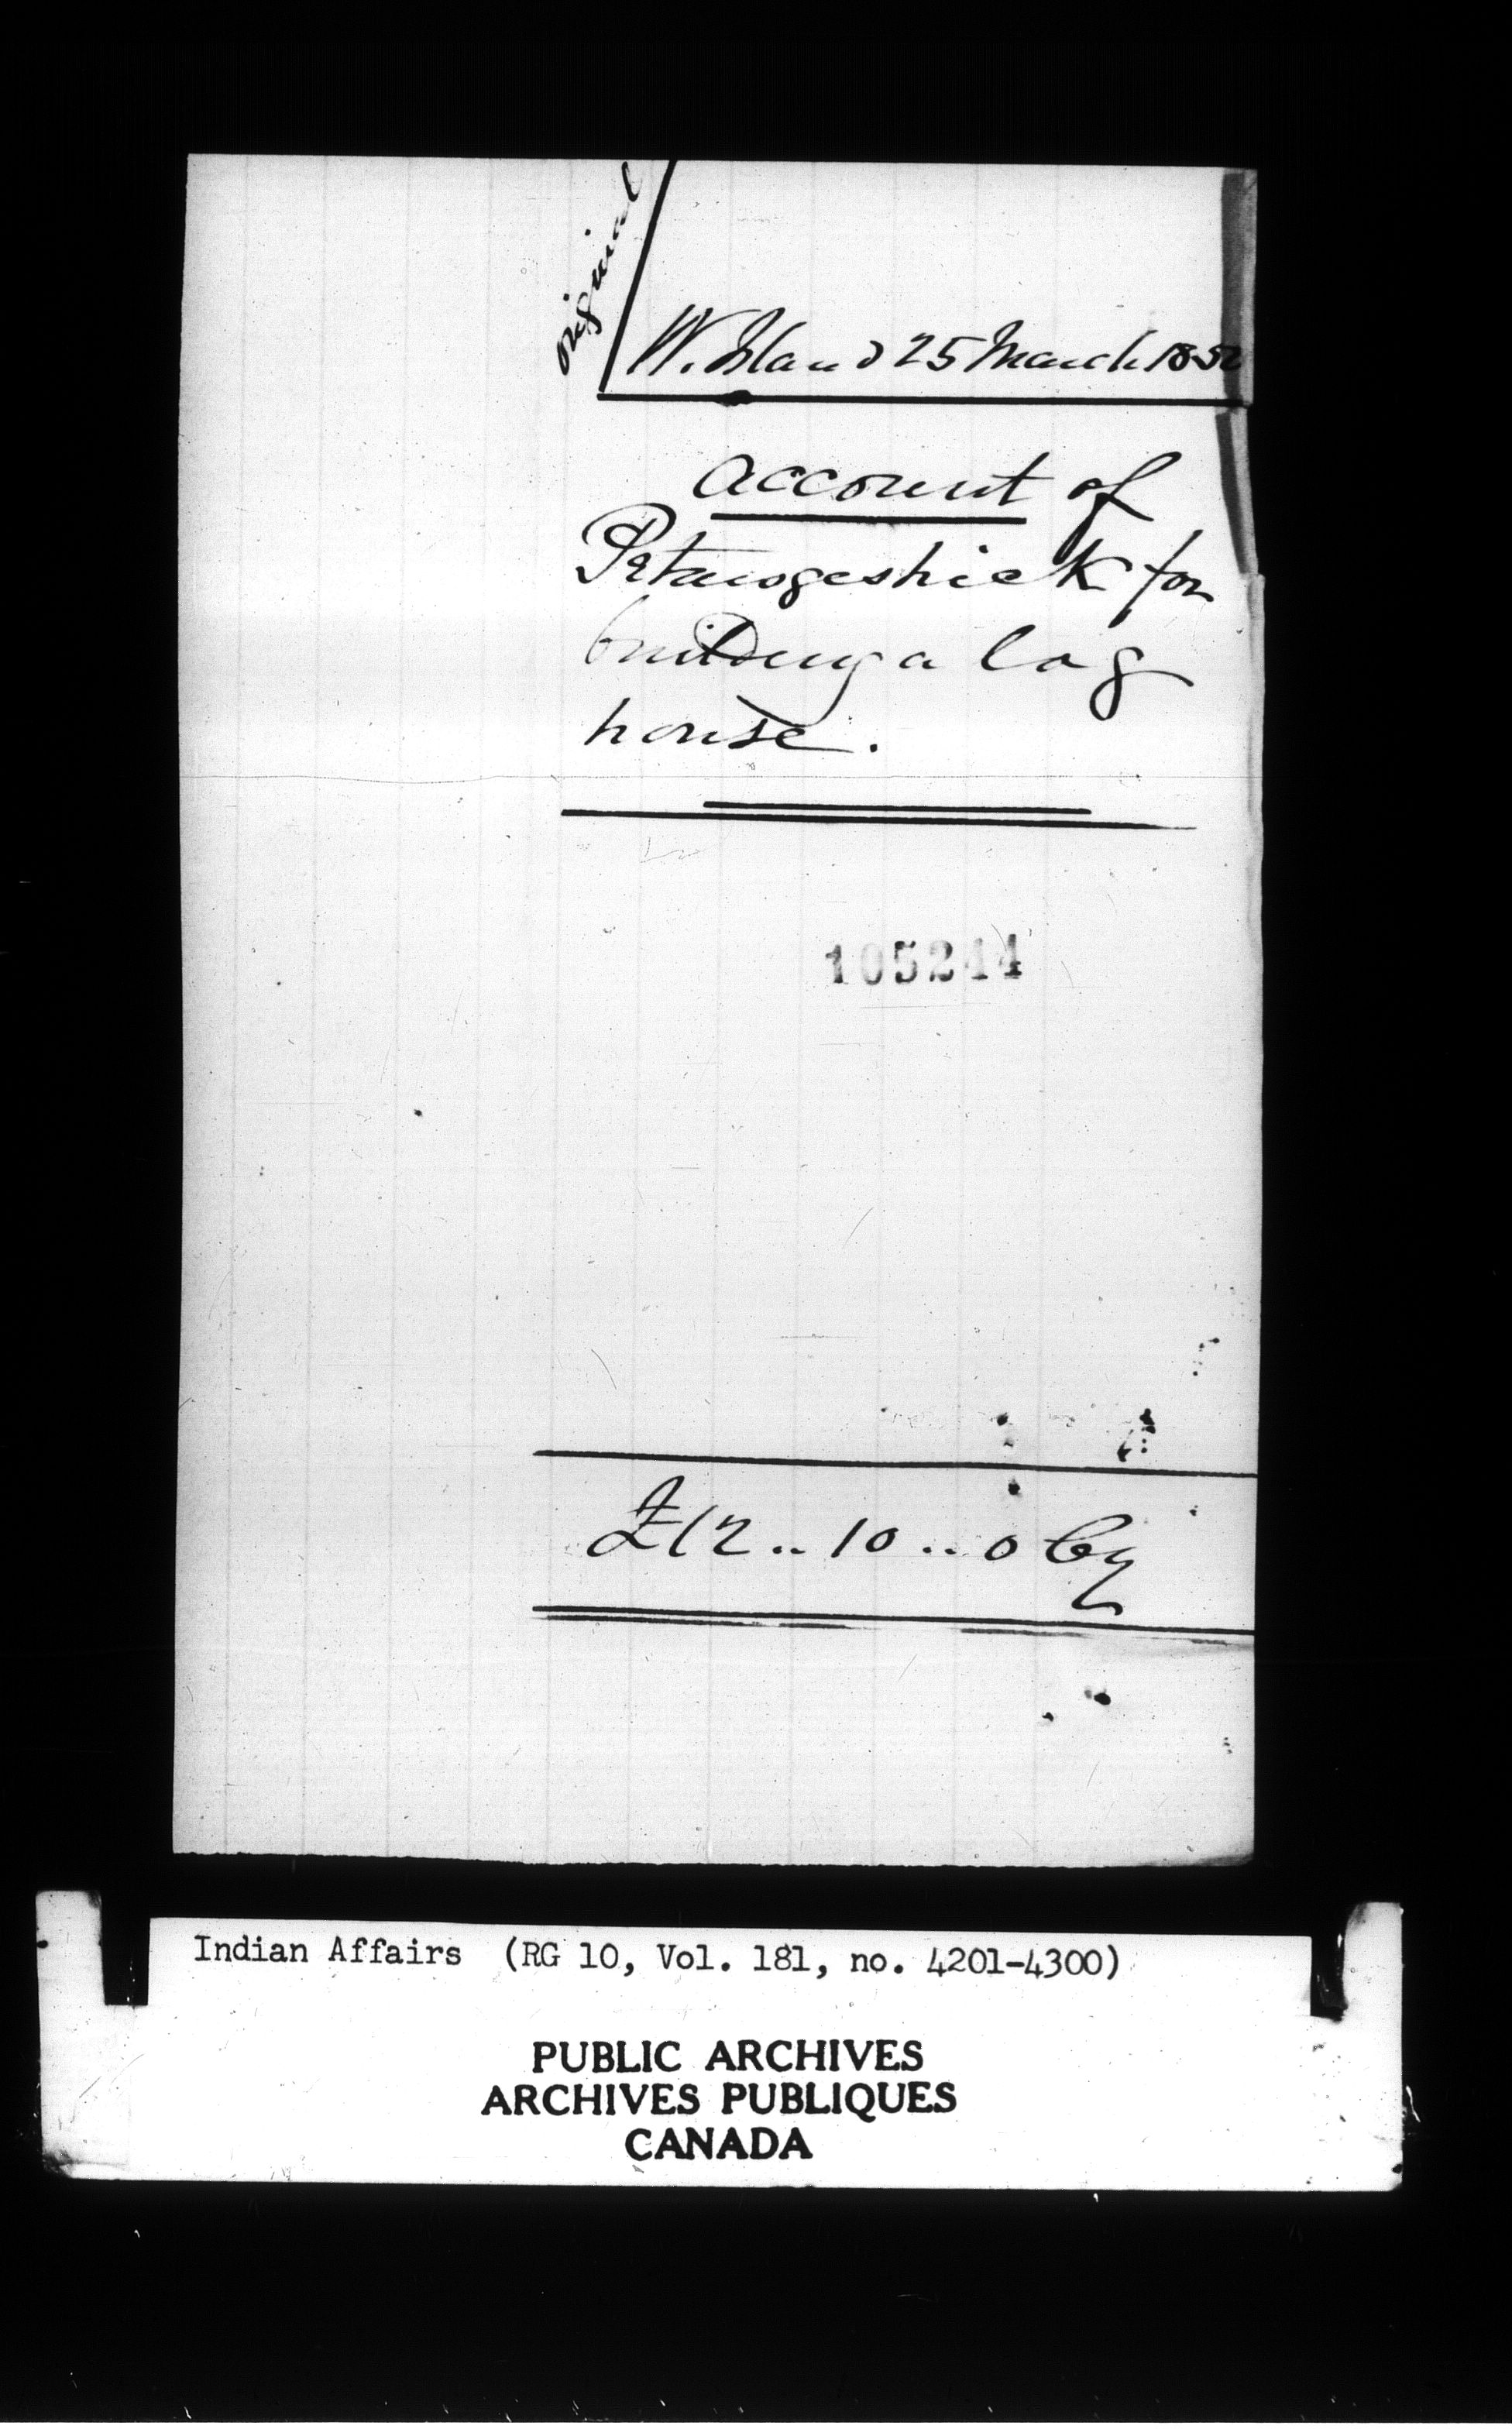 Original
W. Island 25 March 185
account of
Petawogeshick for
building a log
house.
105244
£12..10..0 Cy
Indian Affairs (RG 10, Vol. 181, no. 4201-4300)
PUBLIC ARCHIVES
ARCHIVES PUBLIQUES
CANADA